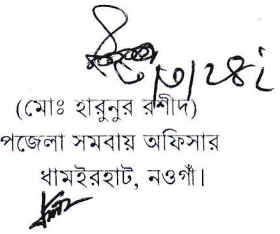 (মোঃ হারুনুর রশীদ)
পজেলা সমবায় অফিসার
ধামইরহাট, নওগাঁ।